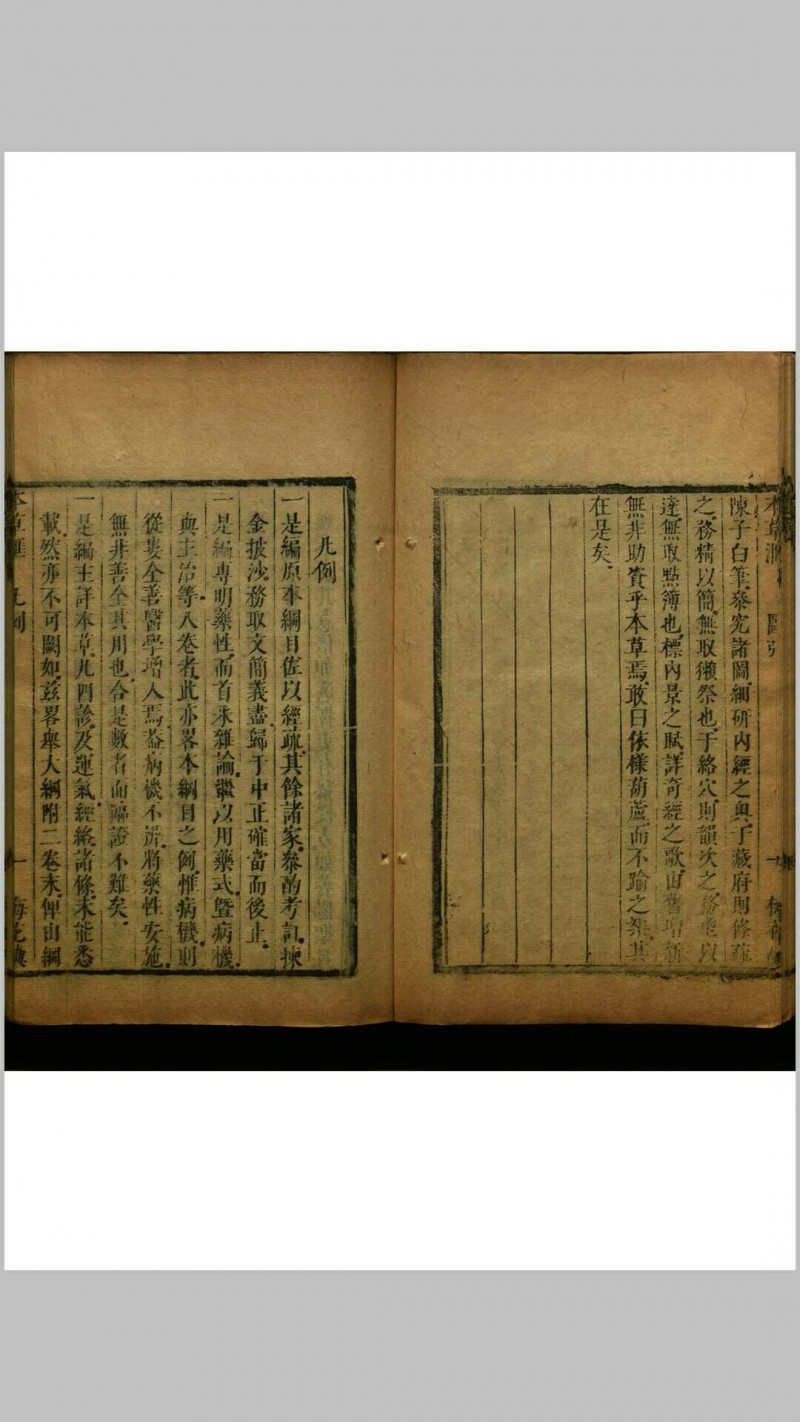 陳子白筆叅究諸圖綱研內經之奧于藏府則條疏
之務精以簡無取獺祭也于絡穴則韻次之務亮以
達無取點簿也標內景之賦詳奇經之歌由舊增新
無非助資乎本草焉敢曰依樣葫蘆而不踰之槩其
在是矣
凡例
一是編原本綱目佐以經疏其餘諸家叅酌考訊揀
金披沙務取文簡義盡歸于中正確當而後止
一是編專明藥性而首末雜論繼以用藥式暨病機
與主治等八卷者此亦畧本綱目之例惟病機則
從婁全善醫學增入焉葢病機不辨將藥性安施
無非善全其用也合是數者而臨證不難矣
一是編主詳本草凡四診及運氣經絡諸條未能悉
載然亦不可闕如茲畧舉大綱附二卷末俾由綱
本草匯 凡例 一